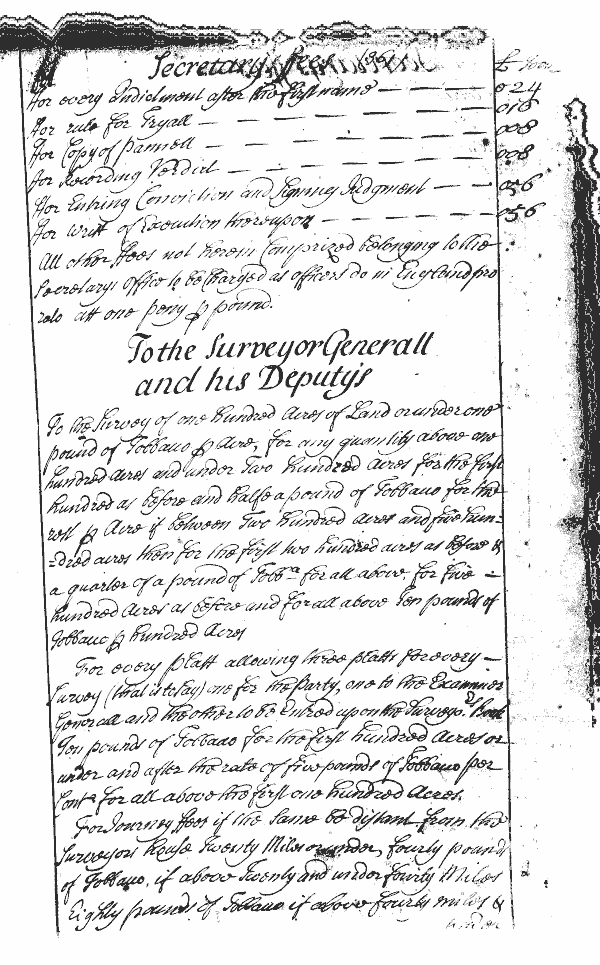 Secretarys ffees
ffor every Indictment after the first name — — — 024
ffor rule for Tryall — — — — — 016
ffor Copy of pannell — — — — — 008
ffor Recording Verdict — — — — — 008
ffor Entring Conviction and Signing Judgment — — 056
ffor writt of Execution thereupon — — — — 056
All other ffees not herein Comprized belonging to the
Secretarys office to be Charged as officers do in England pro
rato att one peny ꝑ pound.
To the Surveyor Generall
and his Deputys
To the Survey of one hundred Acres of Land or under one
pound of Tobbaco ꝑ Acre, for any quantity above one
hundred Acres and under Two hundred acres for the first
hundred as before and halfe a pound of Tobbaco for the
rest ꝑ Acre if between Two hundred Acres and five hun-
-dred acres then for the first two hundred acres as before &
a quarter of a pound of Tobbᵃ for all above. for five -
hundred Acres as before and for all above Ten pounds of
Tobbaco ꝑ hundred Acres
For every platt allowing three platts for every -
Survey (that is to say) one for the Party, one to the Examiner
Generall and the other to be Entred upon the Surveyo.ʳˢ Book
Ten pounds of Tobbaco for the first hundred Acres or
under and after the rate of five pounds of Tobbaco per
Centᵃ for all above the first one hundred Acres.
For Journey ffees if the Same be distant from the
Surveyors house Twenty Miles or under, fourty pounds
of Tobbaco. if above Twenty and under fourty Miles
Eighty pounds of Tobbaco if above fourty miles &
under